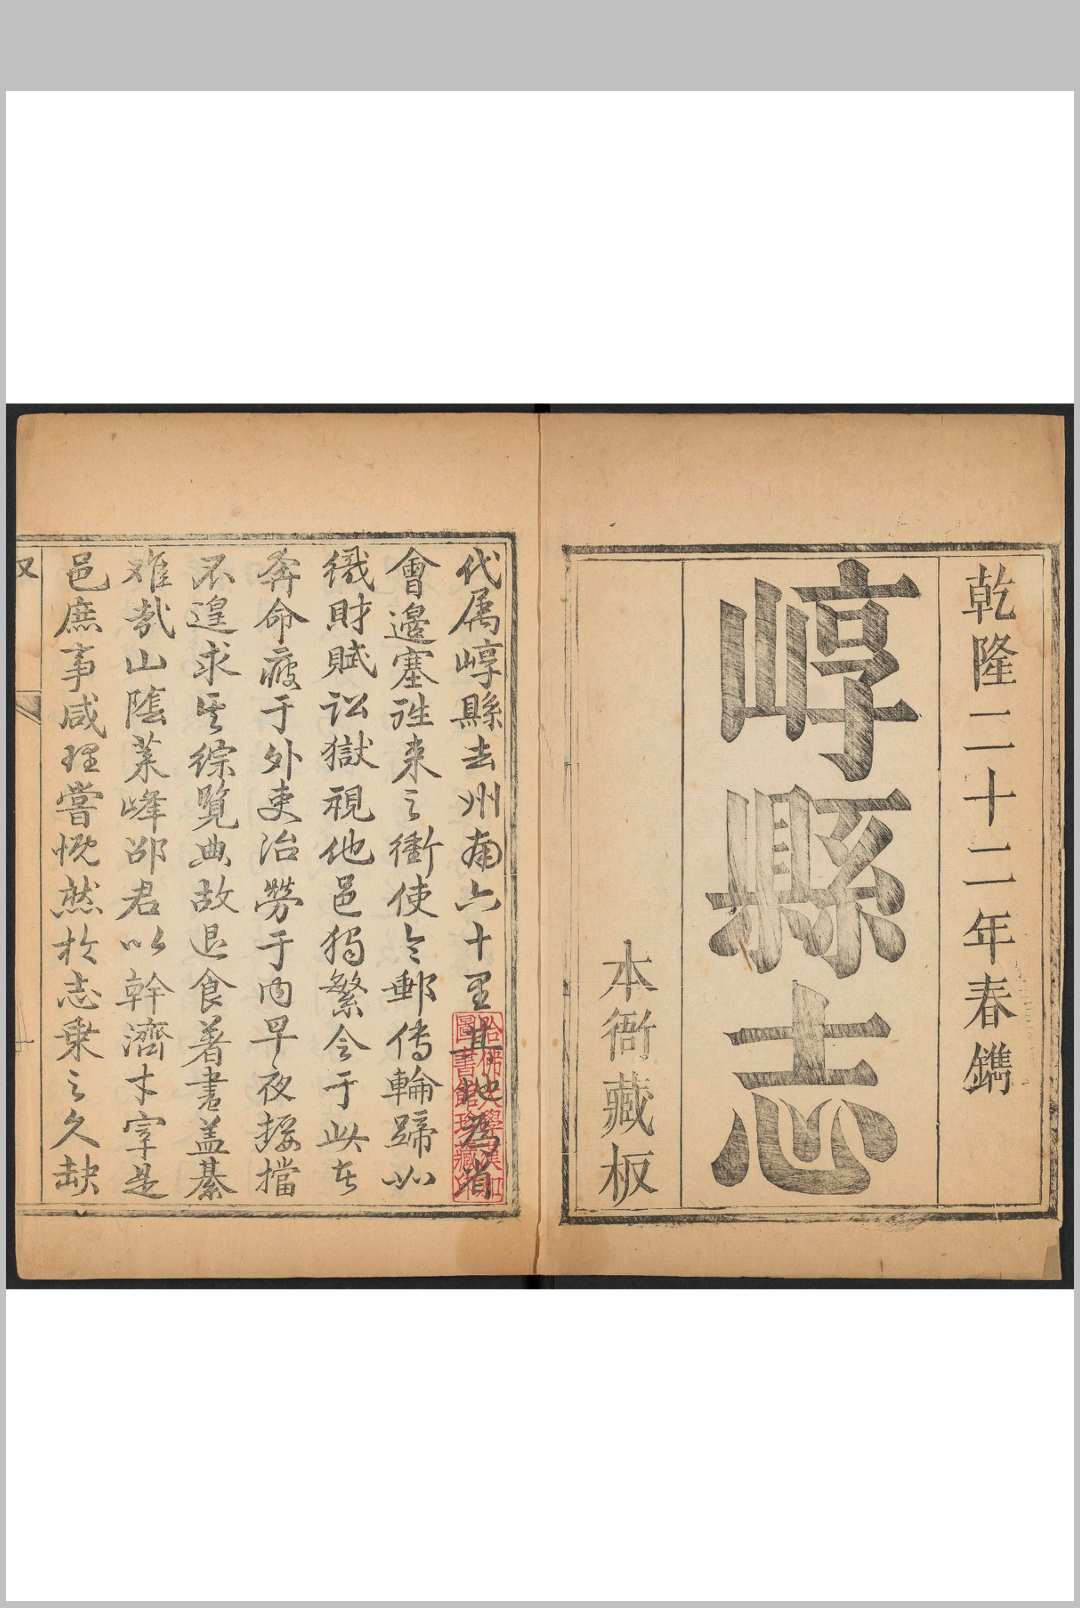 乾隆二十二年春鐫
崞縣志
本衙藏板
代属崞縣去州南六十里其地為省
會邊塞往来之衝使令郵傳輪蹄以
織財賦訟獄視他邑獨繁令于此者
奔命疲于外吏治勞于内早夜摒擋
不遑求其綜覽典故退食著書盖綦
难哉山隂莱峰邵君以幹濟才宰是
邑庶事咸理嘗慨然於志乗之久缺
又
哈佛大學漢和
圖書館珍藏印